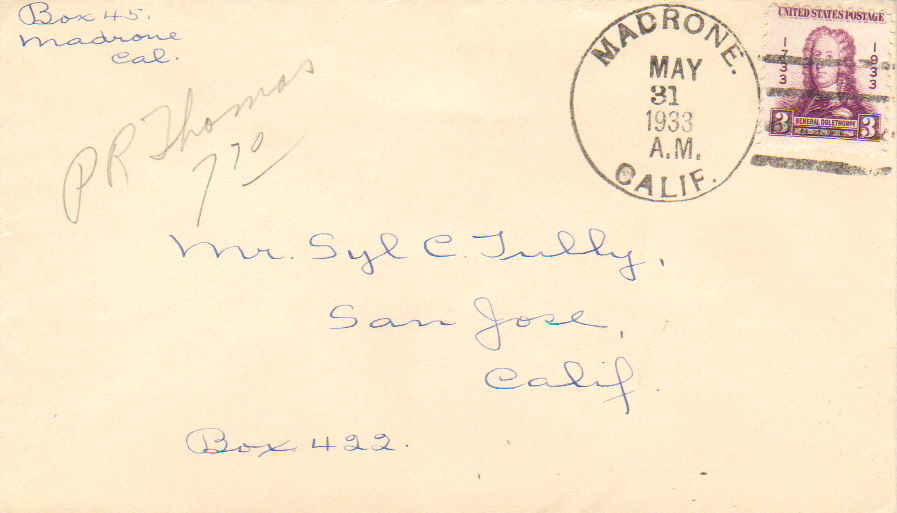 Box 45.
Madrone
Cal.
P R Thomas
7 70
MADRONE.
MAY
31
1933
A.M.
CALIF.
UNITED STATES POSTAGE
1733
1933
3 GENERAL OGLETHORPE 3
Mr. Syl C. Tully,
San Jose,
Calif.
Box 422.